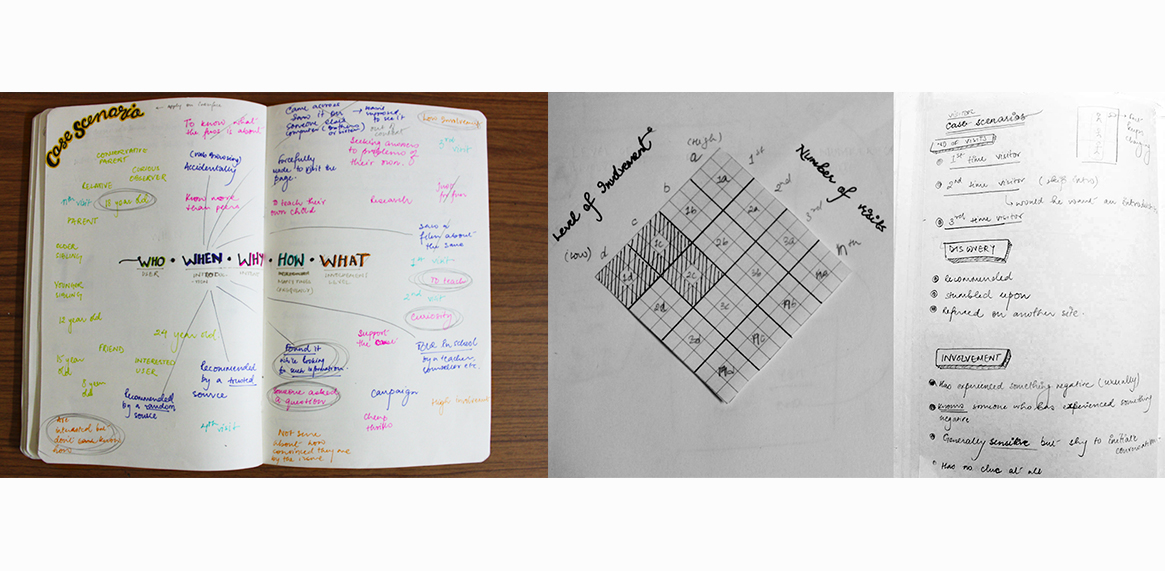 Case Scenario
Apply on Interface
To know what
the fuss is about
CONSERVATIVE
PARENT
CURIOUS
OBSERVER
Accidentally
RELATIVE
nth visit
18 year old
Know more
than peers
PARENT
OLDER
SIBLING
YOUNGER
SIBLING
12 year old
24 year old
FRIEND
INTERESTED
USER
15 year
old
8 year
old
Recommended
by a trusted
source
Recommended
by a random
source
4th visit
don't
how
WHO · WHEN · WHY · HOW · WHAT
USER
came across
saw it on
someone else's
computer
Low Involvement
3rd visit
out of
Seeking answers
to problems of
their own.
Forcefully
made to visit the
page.
to teach their
own child
Research
Saw a
film about
the same
1st visit
To teach
2nd visit
Curiosity
Support
the cause
Found it
while looking
for such information.
Told in school
by a teacher,
counsellor etc.
Someone asked
a question
Campaign
High Involvement
cheap
thrills
Not sure
about how
convinced they are
by the
Level of Involvement
(High)
a
b
c
(Low) d
Number of visits
1st
2nd
3rd
nth
1a
1b
2a
1c
2b
3a
1d
2c
3b
na
3c
VISITOR
case scenarios
NO OF VISITS
1st time visitor
2nd time visitor (skip intro)
would he want an introduction
3rd time visitor
DISCOVERY
Recommended
stumbled upon
Referred on another site.
INVOLVEMENT
Has experienced something negative (usually)
knows someone who has experienced something
negative
Generally sensitive but shy to initiate
conversation
Has no clue at all